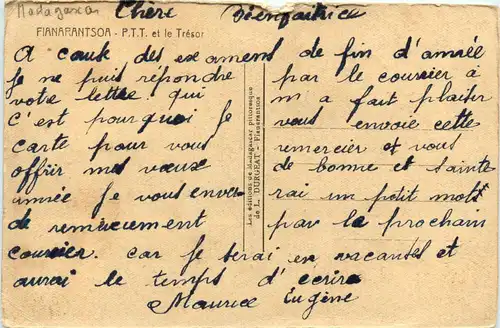 Madagascar
Chère Bienfaitrice
FIANARANTSOA - P.T.T. et le Trésor
A cause des examens de fin d'année
je ne puis répondre par le courrier à
votre lettre. qui m'a fait plaisir
c'est pourquoi je vous envoie cette
carte pour vous remercier et vous
offrir mes vœux de bonne et sainte
année je vous enverrai un petit mots
de remerciement par le prochain
courier. car je serai en vacances et
aurai le temps d'écrire
Maurice Eugène
Les éditions de Madagascar pittoresque
de L. DURGEAT - Fianarantsoa